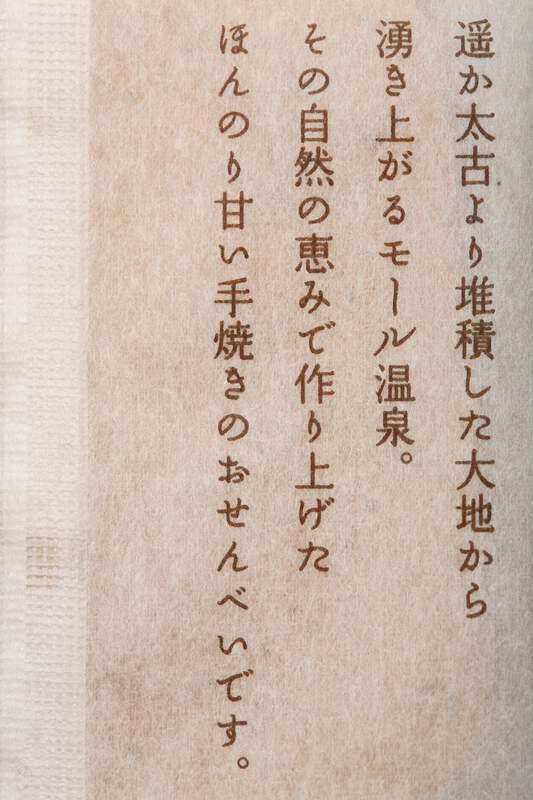 遥か太古より堆積した大地から
湧き上がるモール温泉。
その自然の恵みで作り上げた
ほんのり甘い手焼きのおせんべいです。